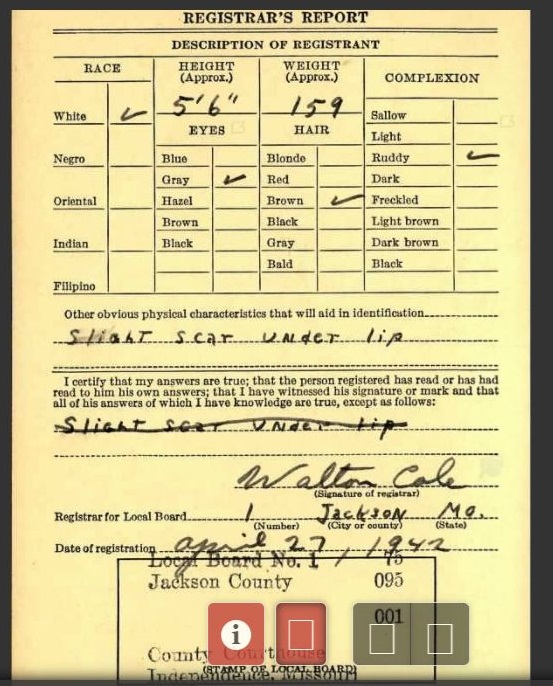 REGISTRAR'S REPORT
DESCRIPTION OF REGISTRANT
RACE
HEIGHT
(Approx.)
WEIGHT
(Approx.)
COMPLEXION
White ✓
5'6"
159
Sallow
EYES
HAIR
Light
Negro
Blue
Blonde
Ruddy ✓
Gray ✓
Red
Dark
Oriental
Hazel
Brown ✓
Freckled
Brown
Black
Light brown
Indian
Black
Gray
Dark brown
Bald
Black
Filipino
Other obvious physical characteristics that will aid in identification
Slight scar under lip
I certify that my answers are true; that the person registered has read or has had
read to him his own answers; that I have witnessed his signature or mark and that
all of his answers of which I have knowledge are true, except as follows:
Slight scar under lip
Walton Cole
(Signature of registrar)
Registrar for Local Board 1 Jackson Mo.
(Number) (City or county) (State)
Date of registration april 27, 1942
Local Board No. 1 75
Jackson County 095
001
County Courthouse
(STAMP OF LOCAL BOARD)
Independence, Missouri